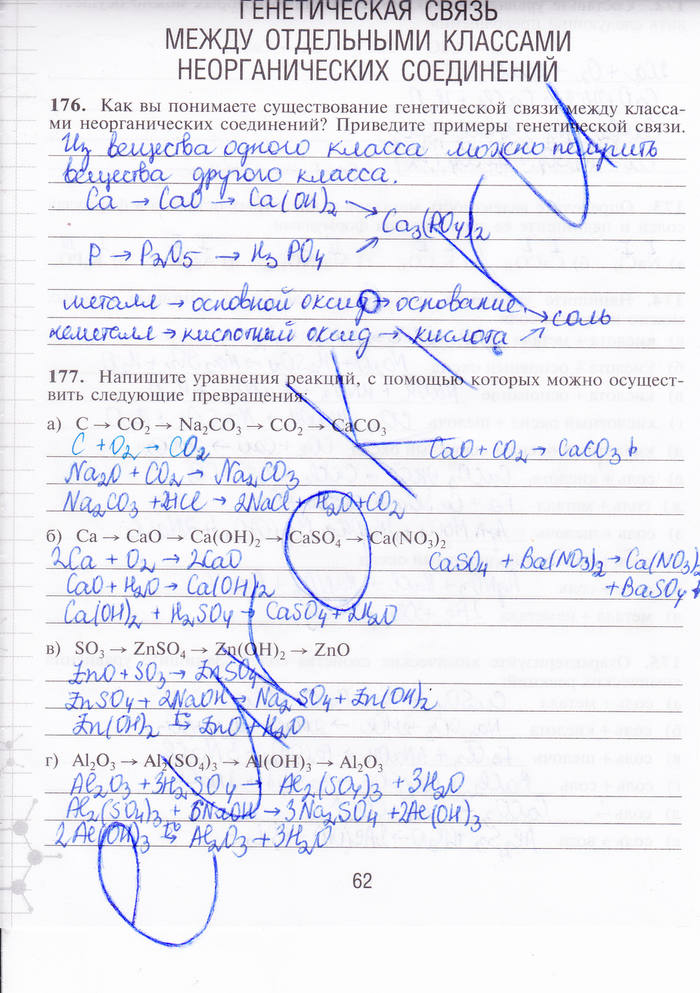 ГЕНЕТИЧЕСКАЯ СВЯЗЬ
МЕЖДУ ОТДЕЛЬНЫМИ КЛАССАМИ
НЕОРГАНИЧЕСКИХ СОЕДИНЕНИЙ
176. Как вы понимаете существование генетической связи между класса-
ми неорганических соединений? Приведите примеры генетической связи.
Из вещества одного класса можно получить
вещества другого класса.
Ca → CaO → Ca(OH)₂ →
Ca₃(PO₄)₂
P → P₂O₅ → H₃PO₄ ↗
металл → основной оксид → основание → соль
неметалл → кислотный оксид → кислота ↗
177. Напишите уравнения реакций, с помощью которых можно осущест-
вить следующие превращения:
а) C → CO₂ → Na₂CO₃ → CO₂ → CaCO₃
C + O₂ → CO₂ CaO + CO₂ → CaCO₃↓
Na₂O + CO₂ → Na₂CO₃
Na₂CO₃ + 2HCl → 2NaCl + H₂O + CO₂
б) Ca → CaO → Ca(OH)₂ → CaSO₄ → Ca(NO₃)₂
2Ca + O₂ → 2CaO CaSO₄ + Ba(NO₃)₂ → Ca(NO₃)₂
CaO + H₂O → Ca(OH)₂ + BaSO₄↓
Ca(OH)₂ + H₂SO₄ → CaSO₄ + 2H₂O
в) SO₃ → ZnSO₄ → Zn(OH)₂ → ZnO
ZnO + SO₃ → ZnSO₄
ZnSO₄ + 2NaOH → Na₂SO₄ + Zn(OH)₂
Zn(OH)₂ t° → ZnO + H₂O
г) Al₂O₃ → Al₂(SO₄)₃ → Al(OH)₃ → Al₂O₃
Al₂O₃ + 3H₂SO₄ → Al₂(SO₄)₃ + 3H₂O
Al₂(SO₄)₃ + 6NaOH → 3Na₂SO₄ + 2Al(OH)₃
2Al(OH)₃ t° → Al₂O₃ + 3H₂O
62